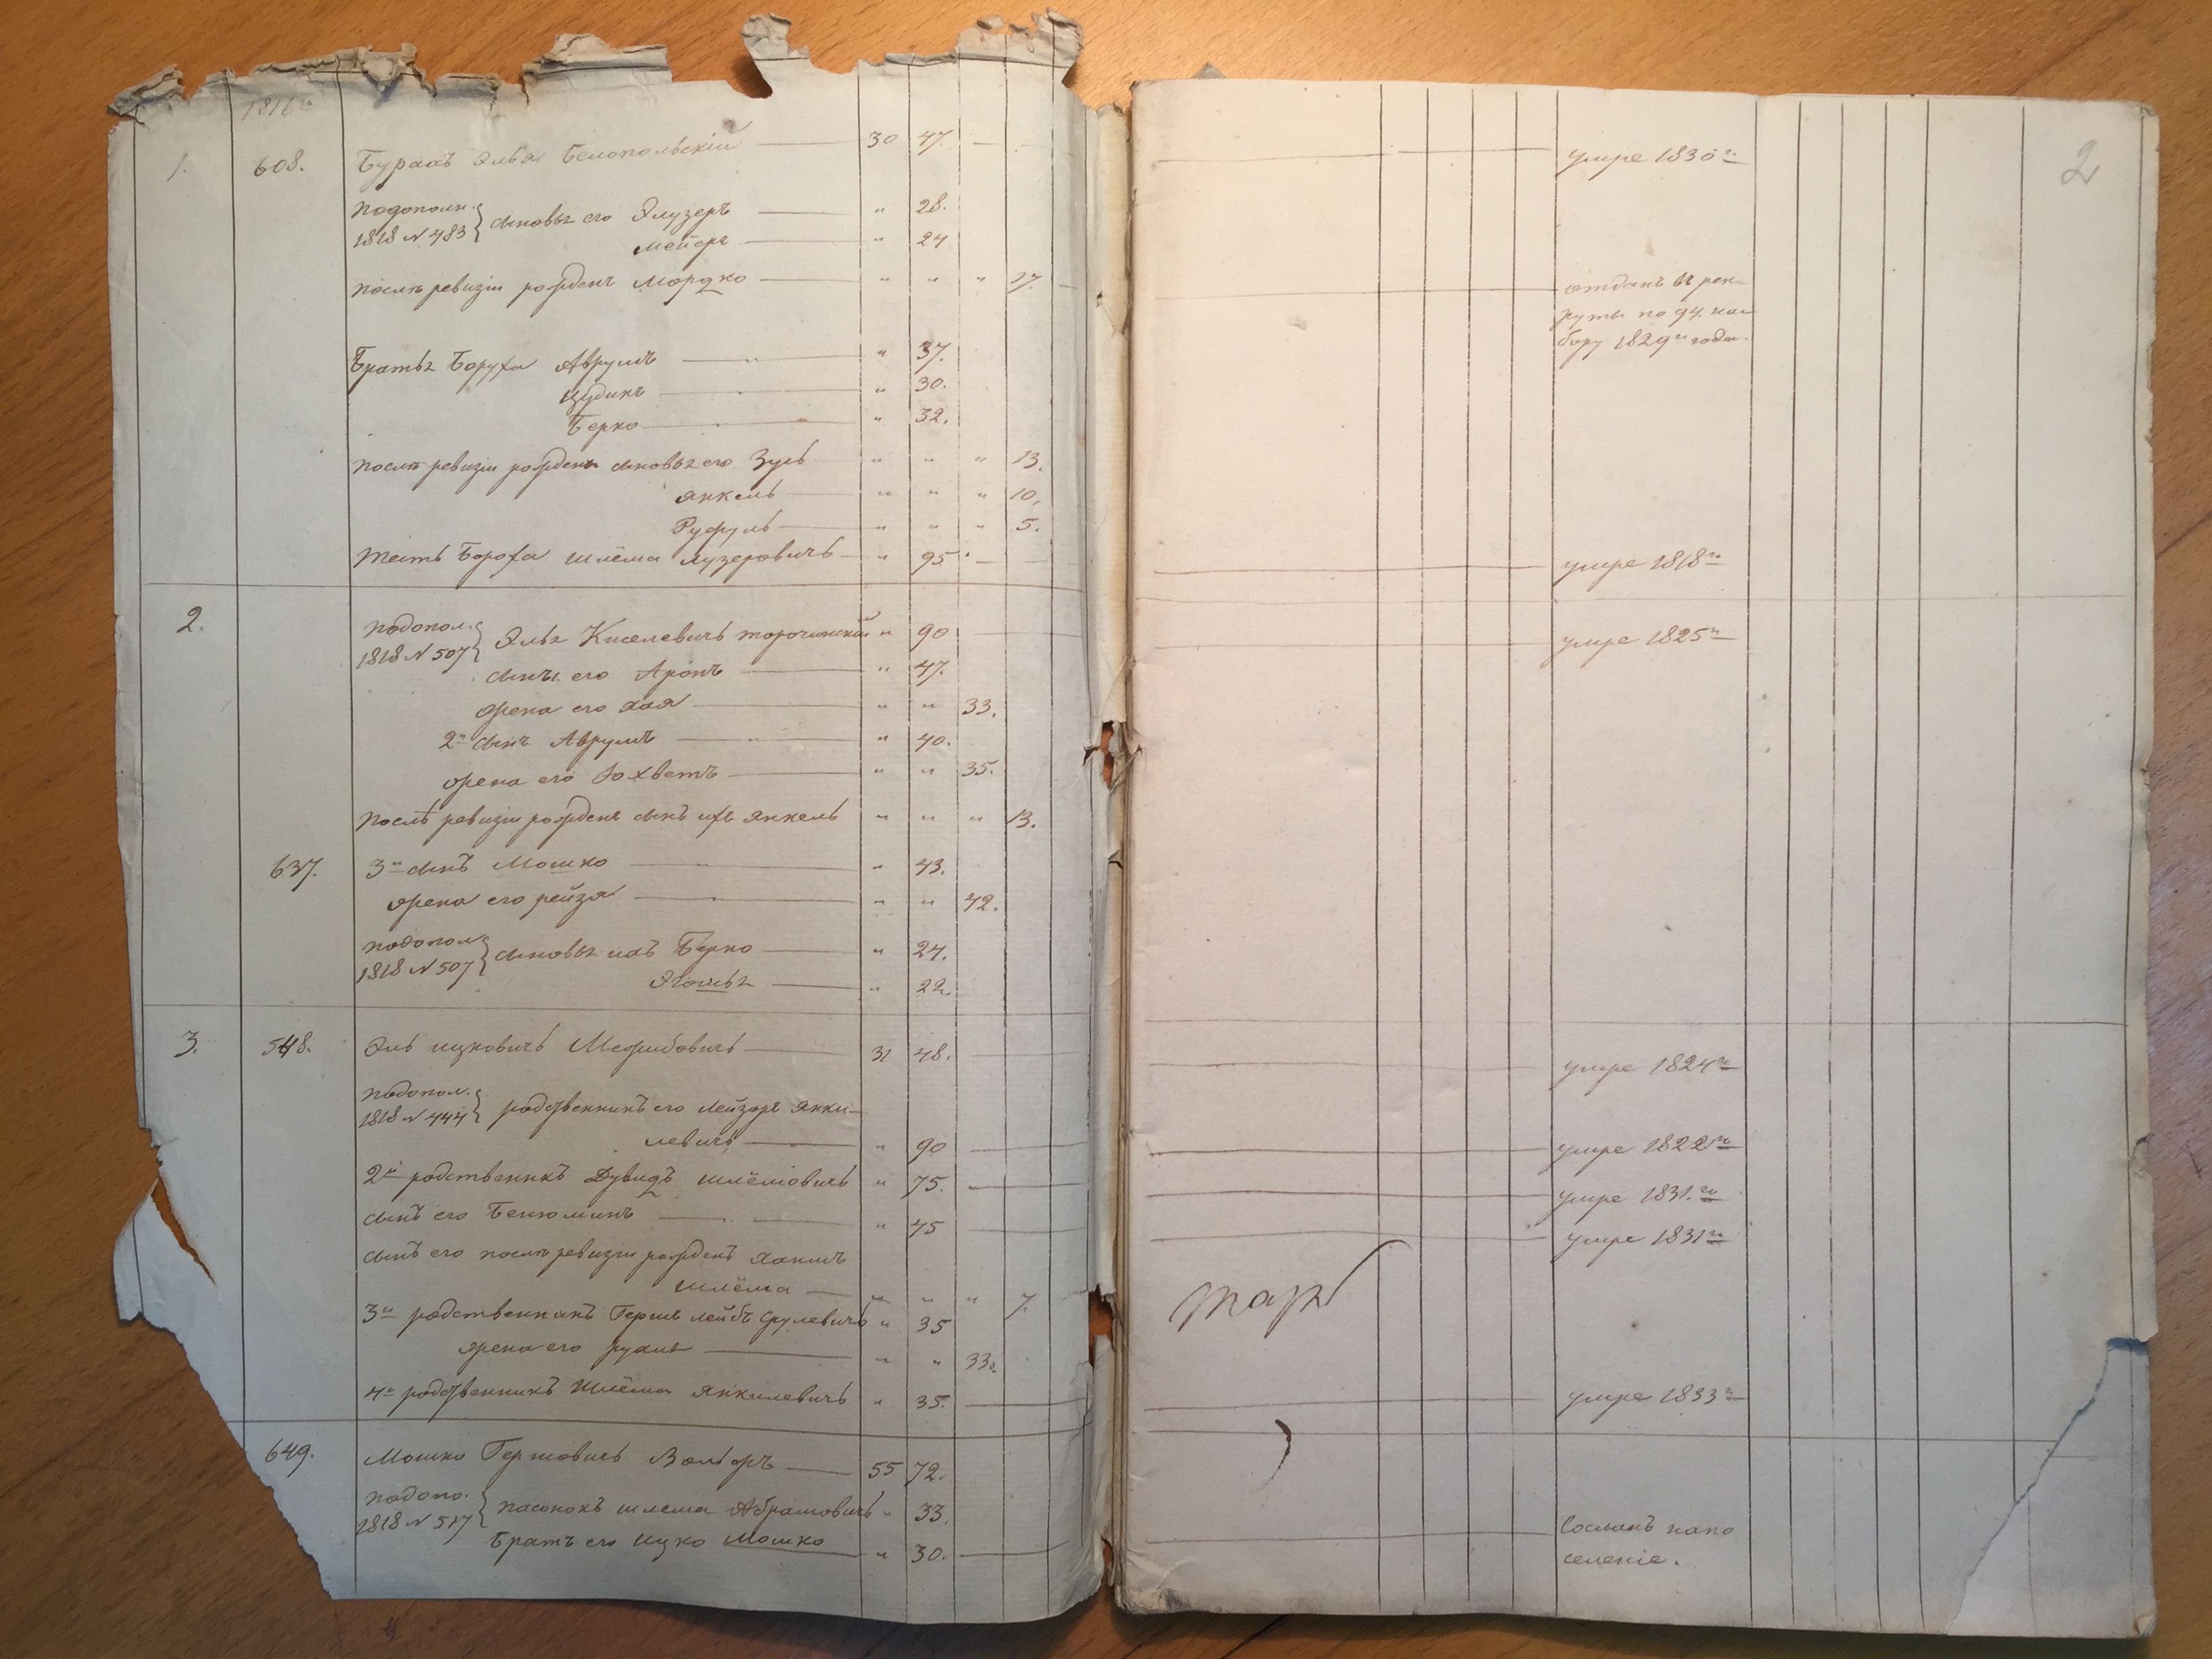 1816го
1. 608. Бурахъ Элья Белопольскій 30 47. умре 1830го
2
Подополн. 1818 N 483 } сыновья его Элузеръ " 28.
Мейеръ " 24
После ревизіи рожденъ Мордко " " " 17. отданъ въ рек-
руты по 94. на-
бору 1829го года.
Братья Боруха Аврумъ " " 37.
Иудикъ " 30.
Берко " 32.
После ревизіи рожден сыновья его Зусь " " " 13.
Янкель " " " 10.
Руфуль " " " 5.
Тесть Бороха Шлёма Лузеровичъ " 95. умре 1818го
2. Подопол. 1818 N 507 } Элья Киселевичъ " 90 умре 1825го
сынъ его Аронъ " 47.
жена его Хая " " 33.
2й сынъ Аврумъ " " 40.
жена его Йохветъ " " 35.
После ревизіи рожденъ сынъ ихъ Янкель " " " 13.
637. 3й сынъ Мошко " " 43.
жена его рейзя " " " 42.
Подопол. 1818 N 507 } сыновья ихъ Берко " 24.
" 22.
3. 548. Эль ицковичъ Межибовичъ 31 48. умре 1824го
Подопол. 1818 N 444 } родственникъ его Лейзоръ Янки-
левичъ " 90 умре 1822го
2й родственникъ Дувидъ Шлёмовичъ " 75. умре 1831.го
сынъ его Бенюминъ " " 45 умре 1831го
сынъ его после ревизіи рожденъ Хаимъ
Шлёма " " " 7.
3й родственникъ Гершъ Лейбъ Срулевичъ " 35
жена его рухля " " 33.
4й родственникъ Шлёма Янкилевичъ " 35. умре 1833го
649. Мошко Гершовичъ Вольфъ 55 72.
Подопо. 1818 N 517 } пасонокъ шлема Абрамовичъ " 33.
Братъ его Ицко Мошко " 30. Сосланъ напо
селеніе.